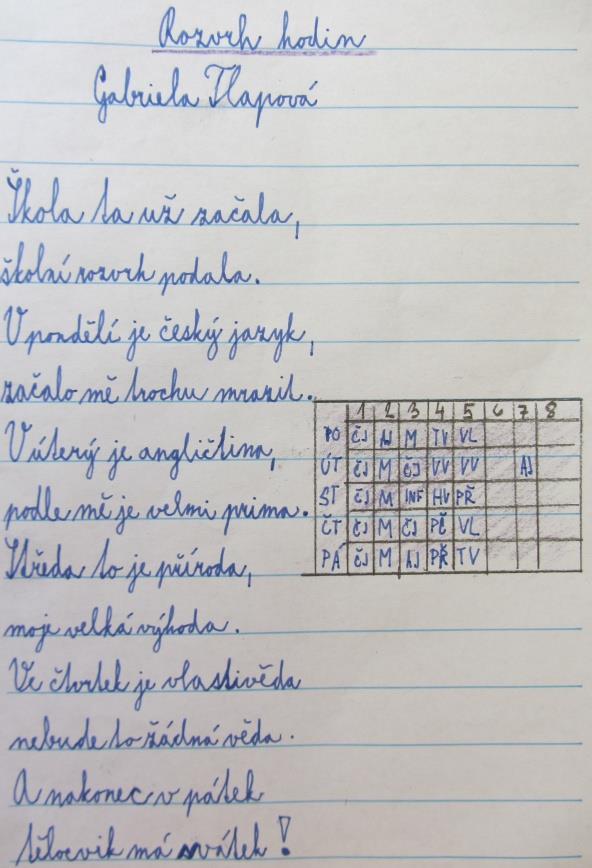 Rozvrh hodin
Gabriela Tlapová
Škola ta už začala,
školní rozvrh podala.
V pondělí je český jazyk,
začalo mě trochu mrazit.
V úterý je angličtina,
podle mě je velmi prima.
Středa to je příroda,
moje velká výhoda.
Ve čtvrtek je vlastivěda
nebude to žádná věda.
A nakonec v pátek
tělocvik má svátek!
1 2 3 4 5 6 7 8
PO ČJ AJ M TV VL
ÚT ČJ M ČJ VV VV AJ
ST ČJ M INF HV PŘ
ČT ČJ M ČJ PČ VL
PÁ ČJ M AJ PŘ TV